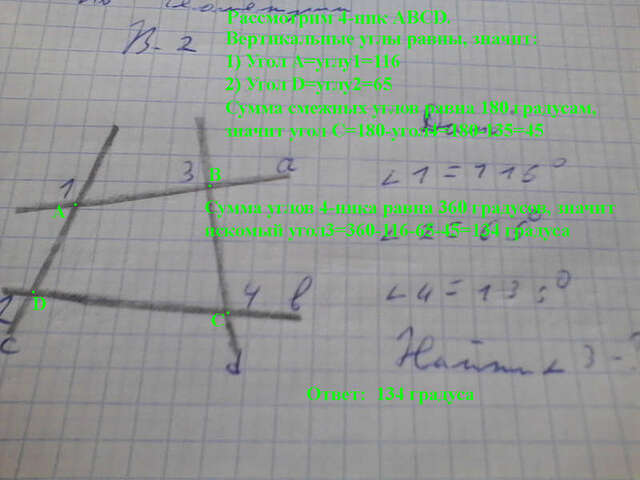 по геометрии
В-2
Рассмотрим 4-ник ABCD.
Вертикальные углы равны, значит:
1) Угол A=углу1=116
2) Угол D=углу2=65
Сумма смежных углов равна 180 градусам,
значит угол C=180-угол4=180-135=45
Сумма углов 4-ника равна 360 градусов, значит
искомый угол3=360-116-65-45=134 градуса
∠1=116°
∠2=65°
∠4=135°
Найти ∠3-?
Ответ: 134 градуса
1
3
B
a
A
2
D
4
b
C
c
d